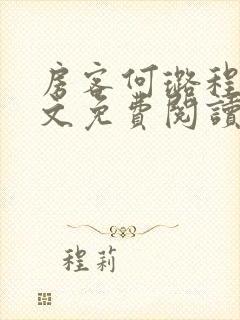 房客何璐程
文免費閱讀
程莉